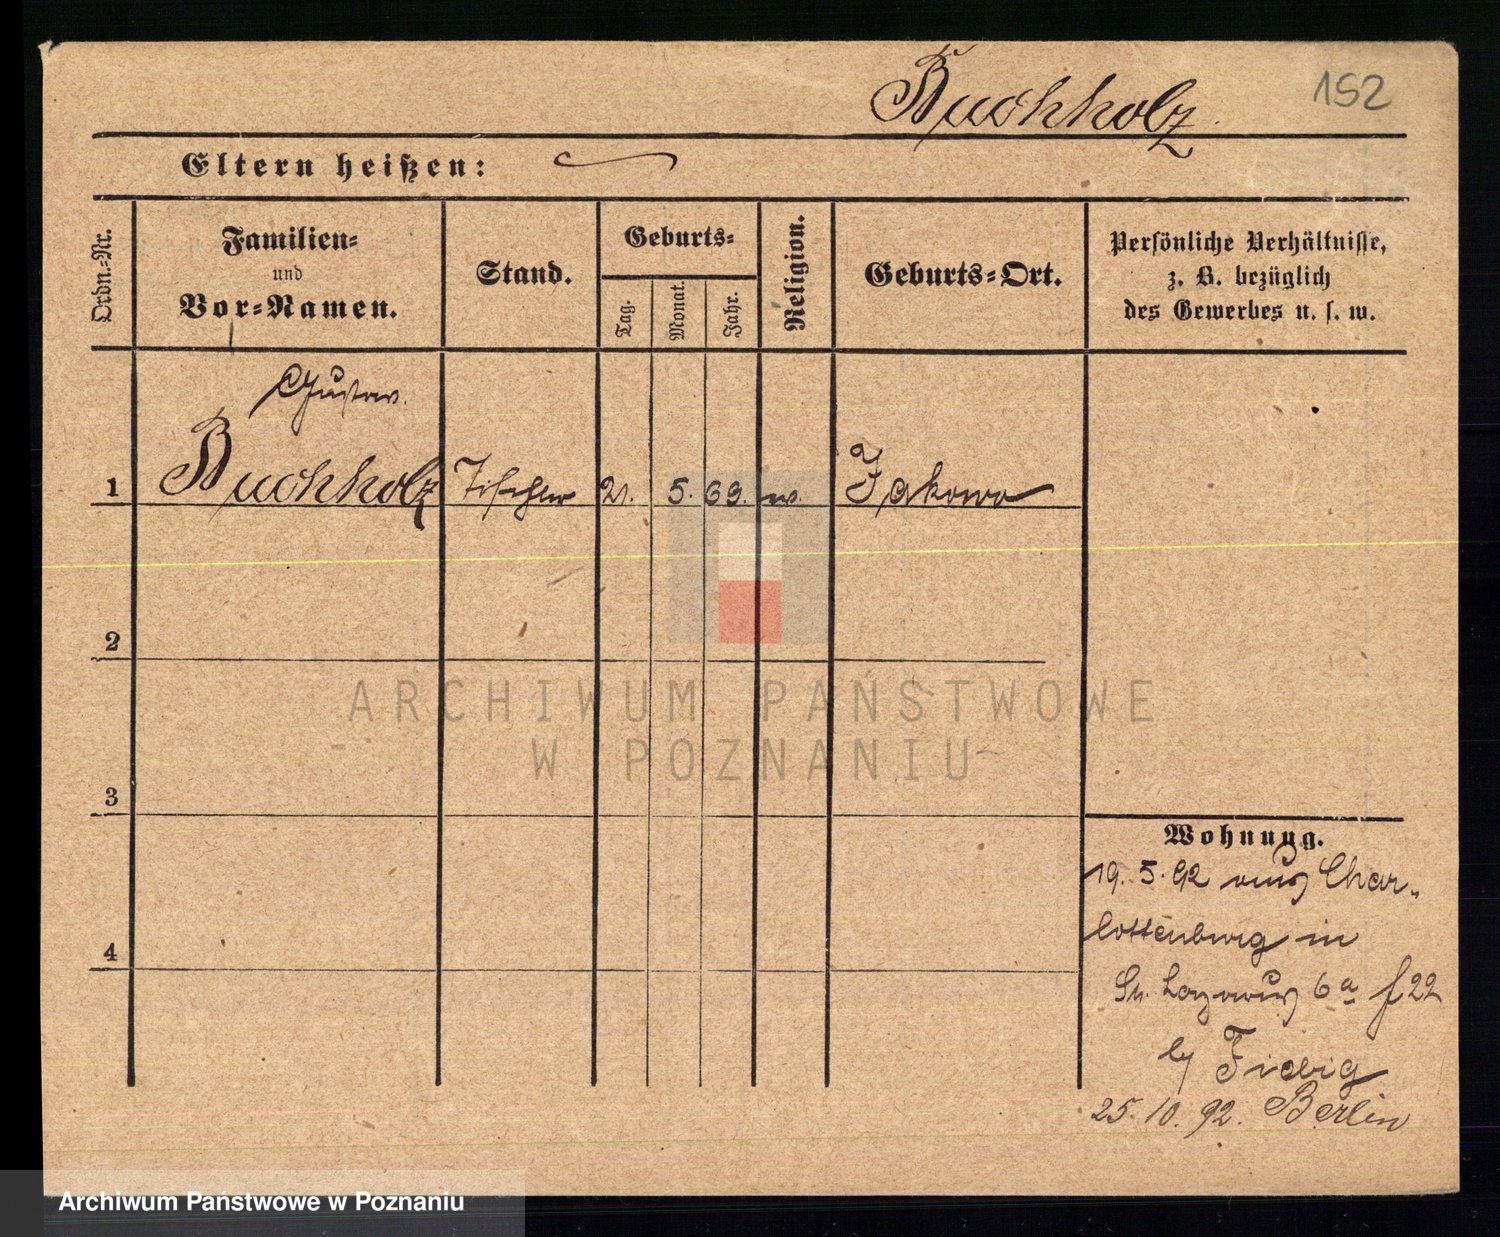 Buchholz.
152
Eltern heißen:
Ordn.-Nr.
Familien-
und
Vor-Namen.
Stand.
Geburts-
Tag.
Monat.
Jahr.
Religion.
Geburts-Ort.
Persönliche Verhältnisse,
z. B. bezüglich
des Gewerbes u. s. w.
Gustav.
1 Buchholz Tischler 21. 5. 69. Jakowo
2
ARCHIWUM PAŃSTWOWE
W POZNANIU
3
Wohnung.
19. 5. 92 aus Char-
lottenburg in
4
St. Lazarus 6a f 22
b/ Fiebig
25. 10. 92. Berlin
Archiwum Państwowe w Poznaniu